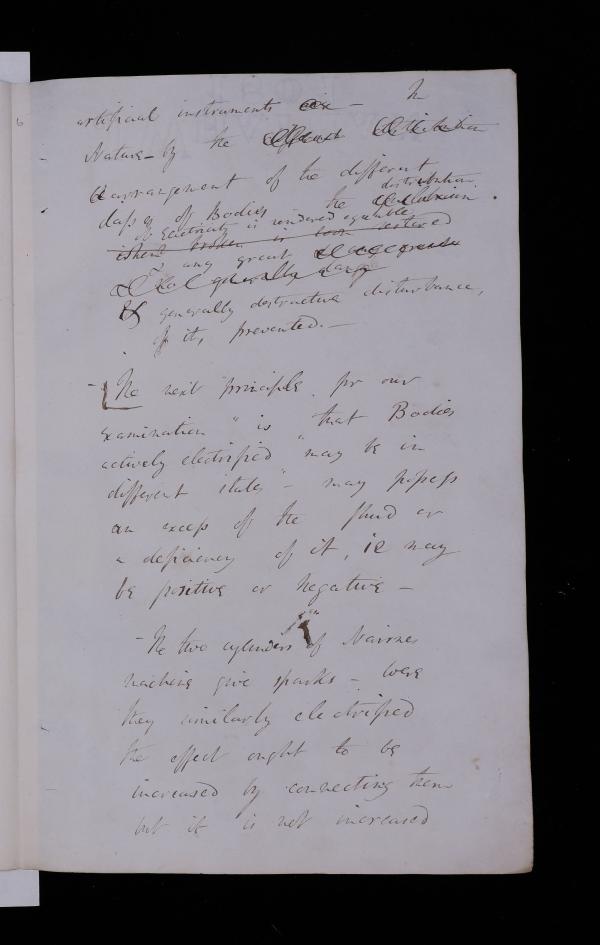 artificial instruments — In
Nature - by the different distribution
& arrangement of the different
classes of Bodies the distribution
of Electricity is rendered equable
is soon restored
& any great
generally
& generally destructive disturbance,
of it, prevented. —
— The next principle for our
examination " is " that Bodies
actively electrified " may be in
different states " - may possess
an excess of the fluid or
a deficiency of it, ie may
be positive or negative —
— The two cylinders of Nairnes
machine give sparks - were
they similarly electrified
the effect ought to be
increased by connecting them
but it is not increased